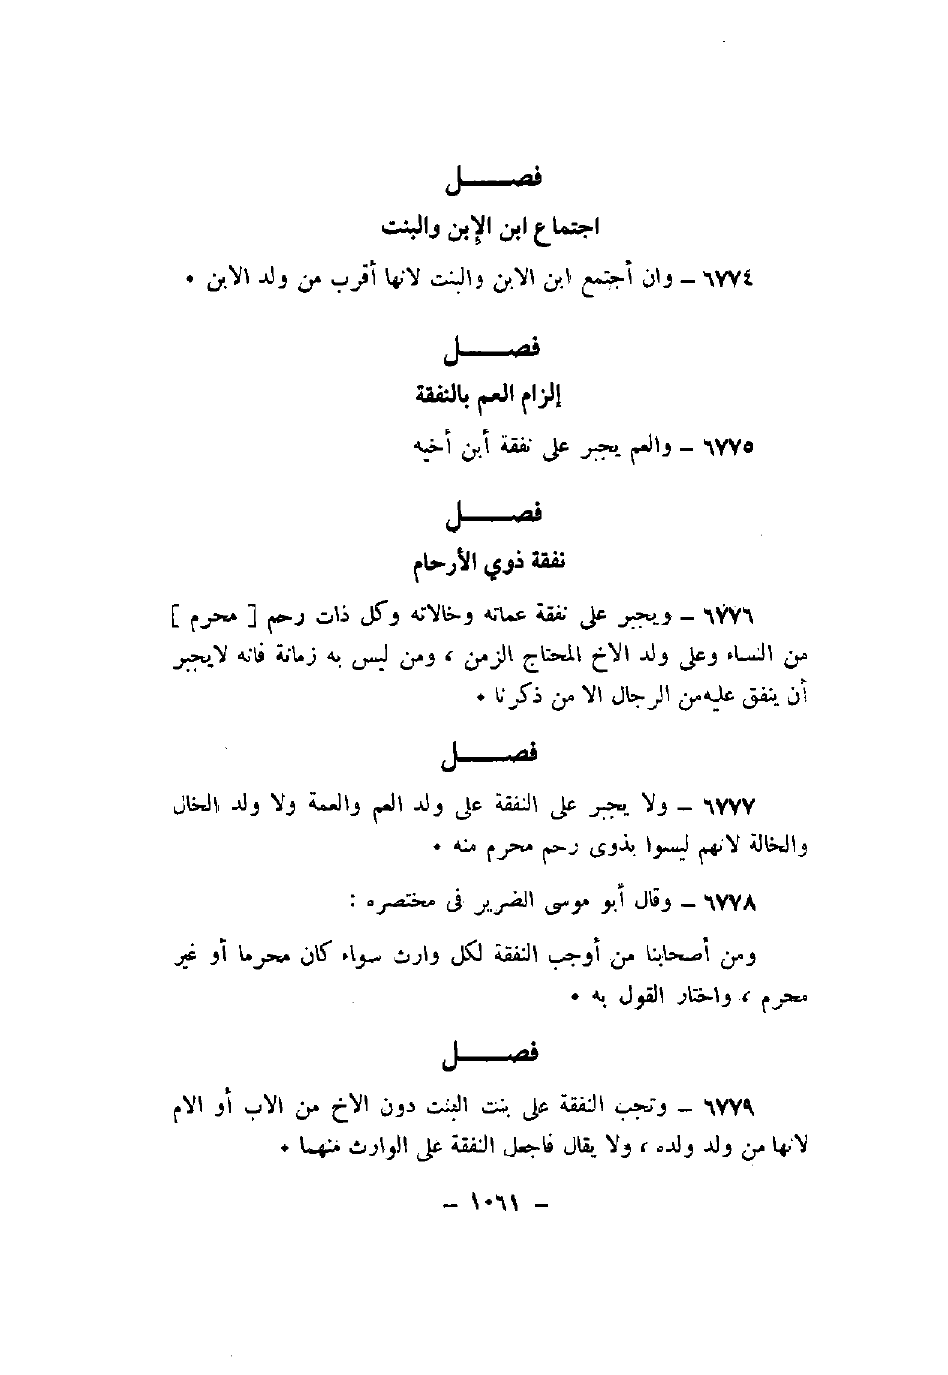 فصـــــل
اجتماع ابن الإبن والبنت
٦٧٧٤ – وان أجتمع ابن الابن والبنت لانها أقرب من ولد الابن •
فصـــــل
إلزام العم بالنفقة
٦٧٧٥ – والعم يجبر على نفقة أبن أخيه
فصـــــل
نفقة ذوي الأرحام
٦٧٧٦ – ويجبر على نفقة عماته وخالاته وكل ذات رحم [ محرم ]
من النساء وعلى ولد الاخ المحتاج الزمن ، ومن ليس به زمانة فانه لايجبر
أن ينفق عليه من الرجال الا من ذكرنا •
فصـــــل
٦٧٧٧ – ولا يجبر على النفقة على ولد العم والعمة ولا ولد الخال
والخالة لانهم ليسوا بذوى رحم محرم منه •
٦٧٧٨ – وقال أبو موسى الضرير فى مختصره :
ومن أصحابنا من أوجب النفقة لكل وارث سواء كان محرما أو غير
محرم ، واختار القول به •
فصـــــل
٦٧٧٩ – وتجب النفقة على بنت البنت دون الاخ من الاب أو الام
لانها من ولد ولده ، ولا يقال فاجعل النفقة على الوارث منهما •
– ١٠٦١ –